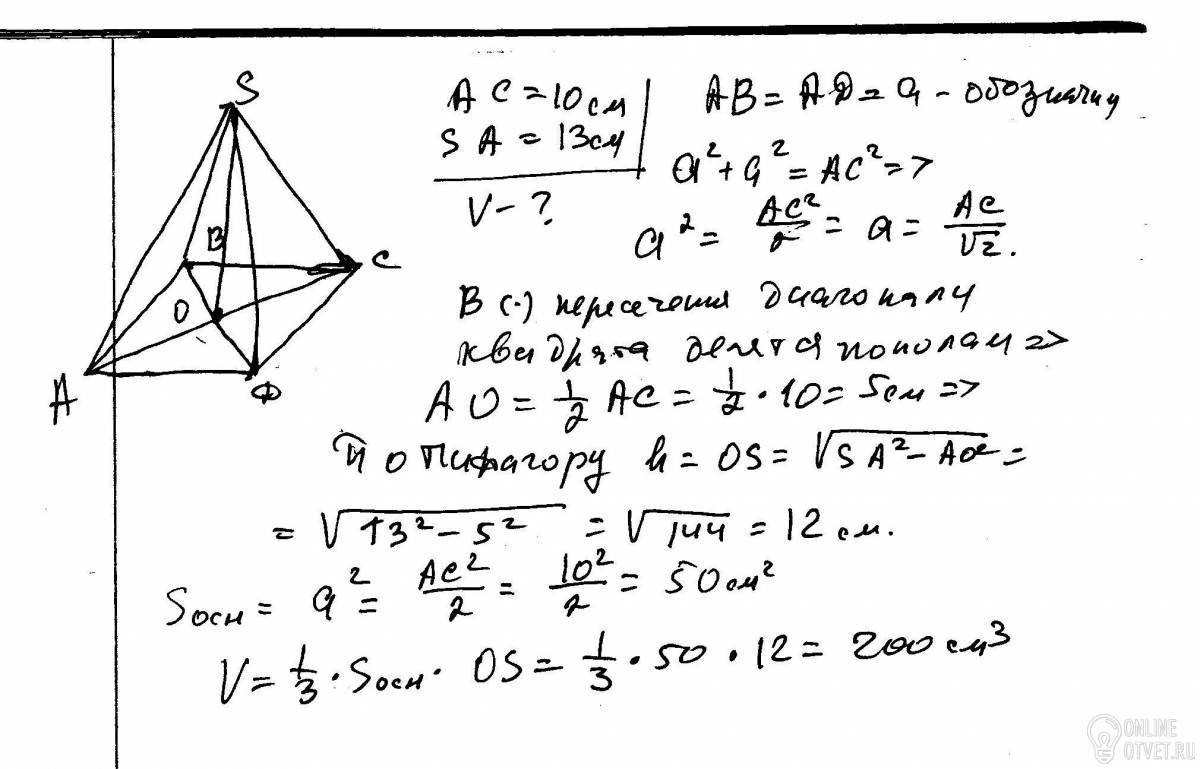 S
B
C
O
A
D
AC = 10 см
SA = 13 см
V - ?
AB = AD = a - обозначим
a² + a² = AC² =>
a² = AC²/2 = a = AC/√2.
В (·) пересечения диагонали
квадрата делятся пополам =>
AO = 1/2 AC = 1/2 · 10 = 5 см =>
По Пифагору h = OS = √SA² - AO² =
= √13² - 5² = √144 = 12 см.
Sосн = a² = AC²/2 = 10²/2 = 50 см²
V = 1/3 · Sосн · OS = 1/3 · 50 · 12 = 200 см³
ONLINE
OTVET.RU